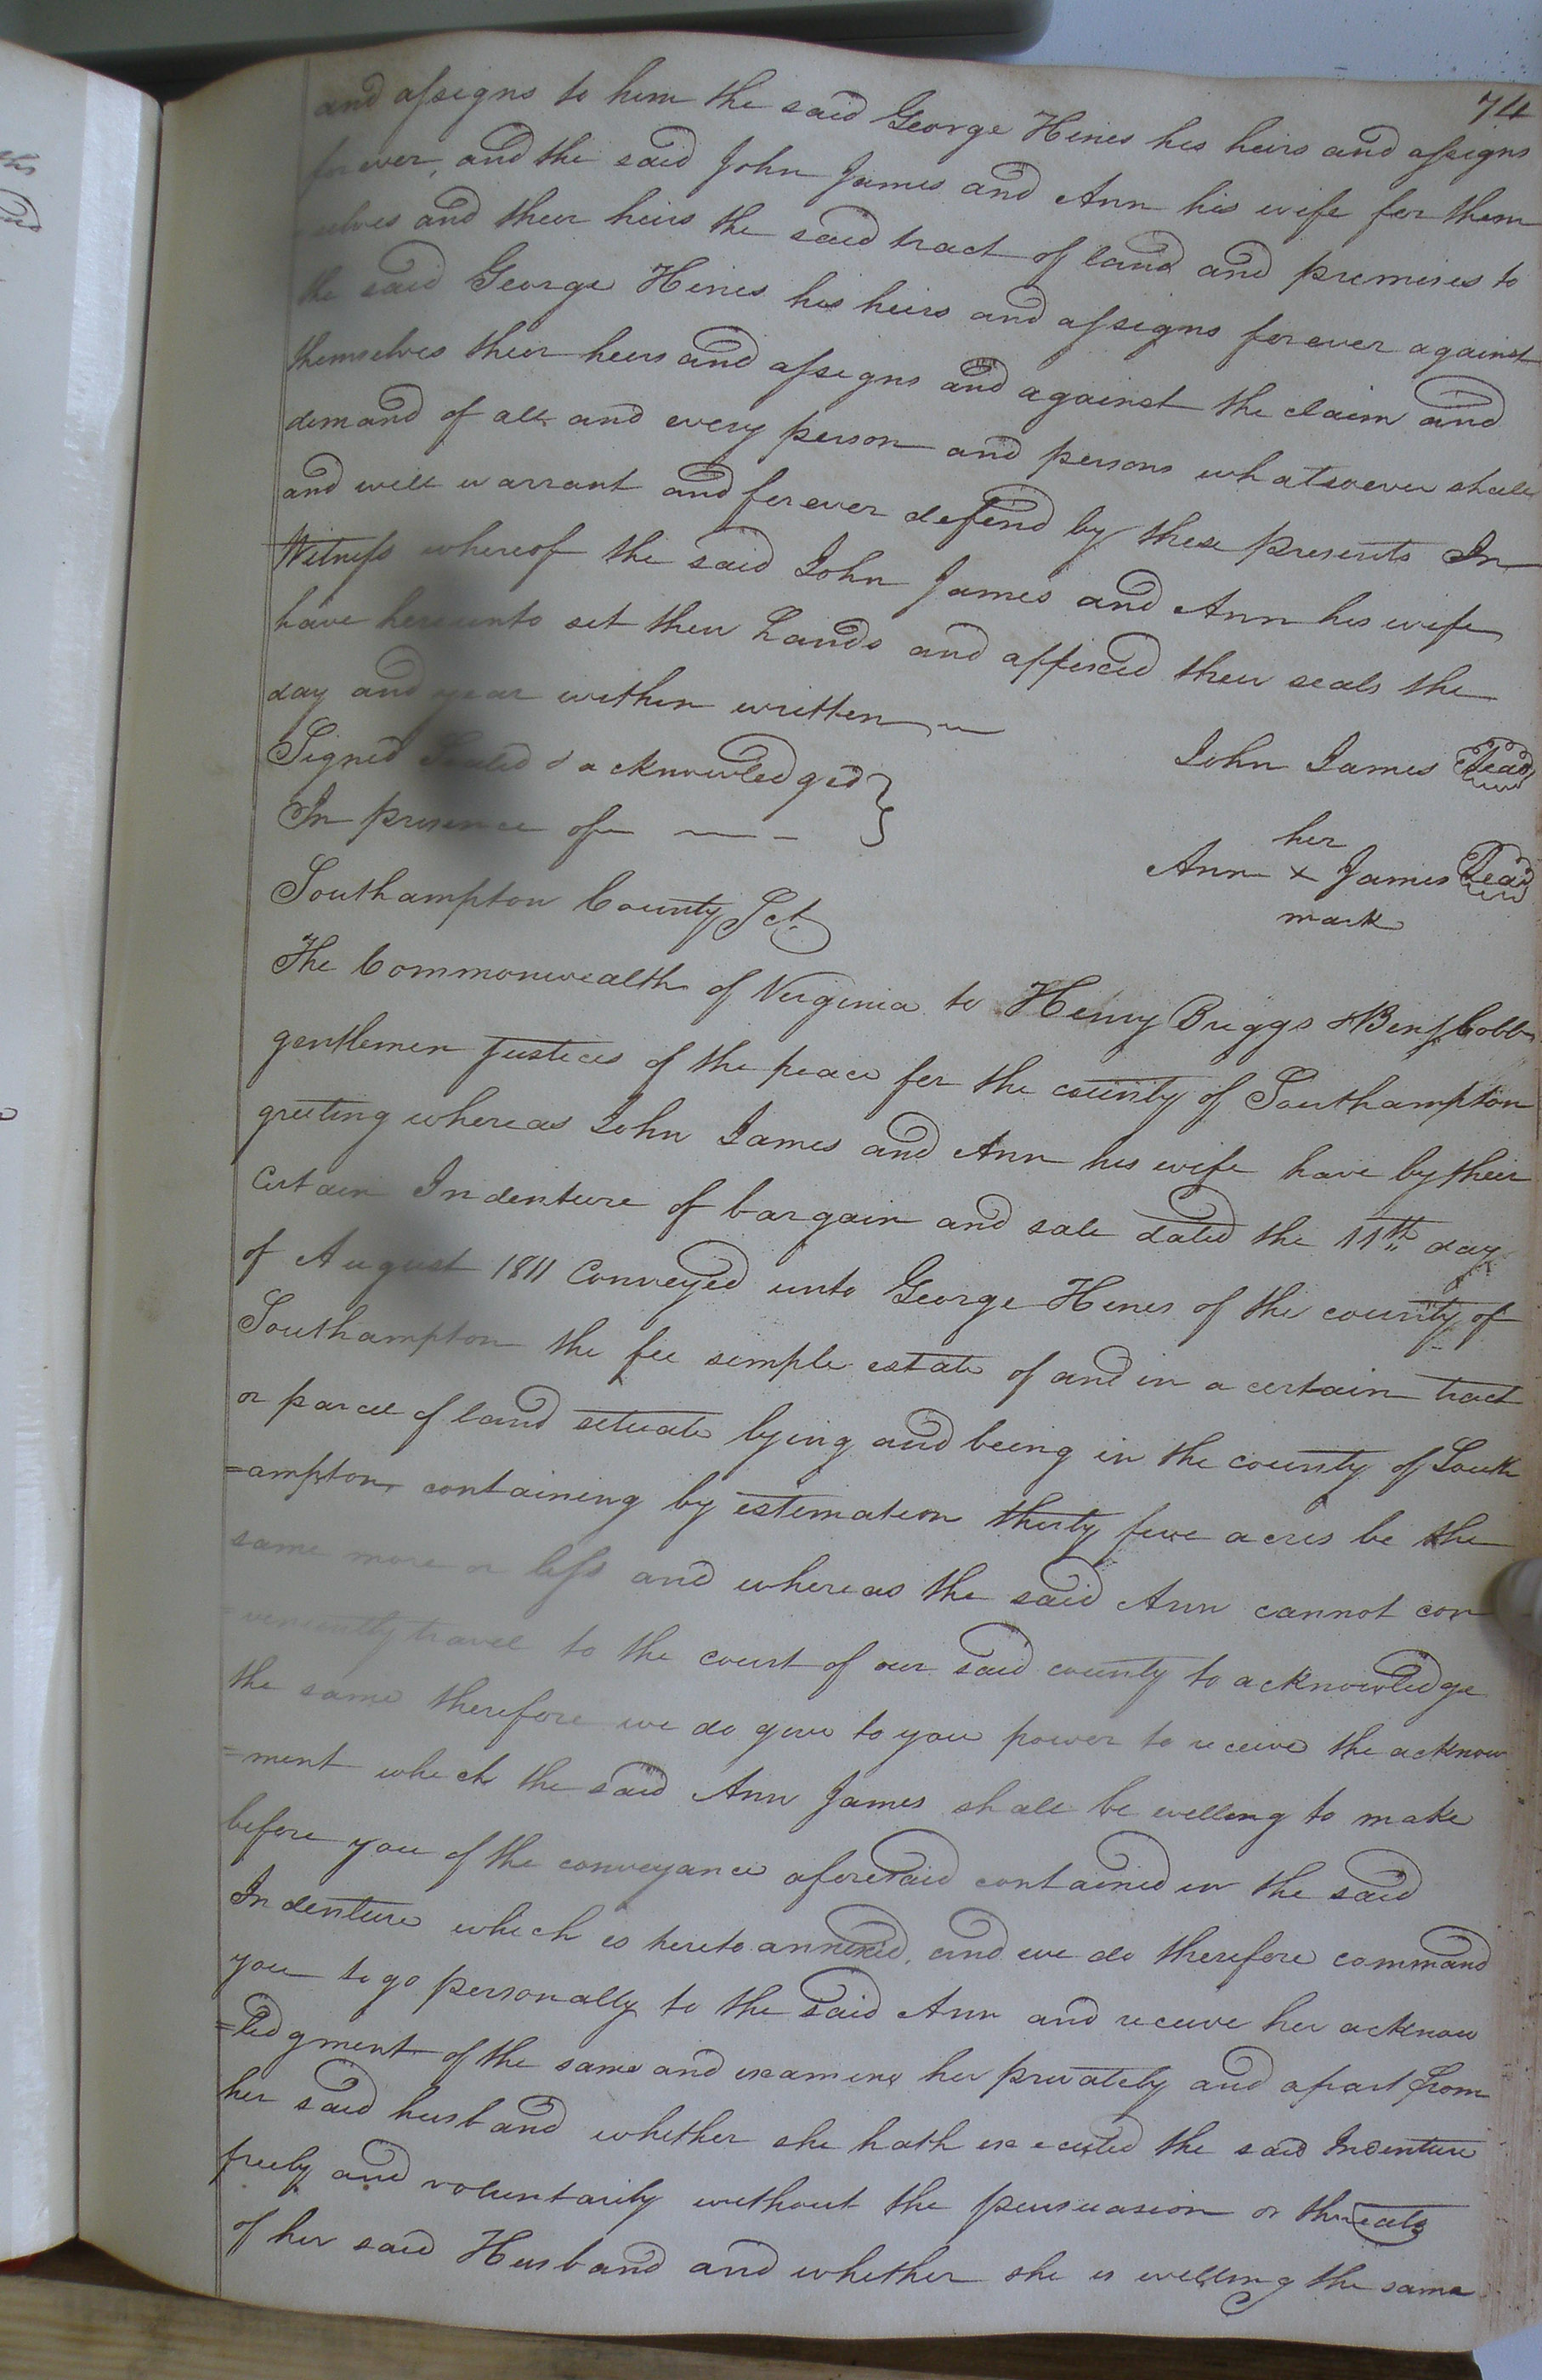 74
and assigns to him the said George Hines his heirs and assigns
forever, and the said John James and Ann his wife for them
=selves and their heirs the said tract of land and premises to
the said George Hines his heirs and assigns forever against
themselves their heirs and assigns and against the claim and
demand of all and every person and persons whatsoever shall
and will warrant and forever defend by these presents In
Witness whereof the said John James and Ann his wife
have hereunto set their hands and affixed their seals the
day and year within written
Signed Sealed & acknowledged }
John James Seal
In presence of
her
Ann x James Seal
mark
Southampton County Sct
The Commonwealth of Virginia to Henry Briggs & Benj Cobb
gentlemen Justices of the peace for the county of Southampton
greeting whereas John James and Ann his wife have by their
certain Indenture of bargain and sale dated the 11th day
of August 1811 Conveyed unto George Hines of the county of
Southampton the fee simple estate of and in a certain tract
or parcel of land situate lying and being in the county of South
=ampton containing by estimation thirty five acres be the
same more or less and whereas the said Ann cannot con
=veniently travel to the court of our said county to acknowledge
the same therefore we do give to you power to receive the acknow
=ment which the said Ann James shall be willing to make
before you of the conveyance aforesaid contained in the said
Indenture which is hereto annexed, and we do therefore command
you to go personally to the said Ann and receive her acknow
=ledgment of the same and examine her privately and apart from
her said husband whether she hath executed the said Indenture
freely and voluntarily without the persuasion or threats
of her said Husband and whether she is willing the same